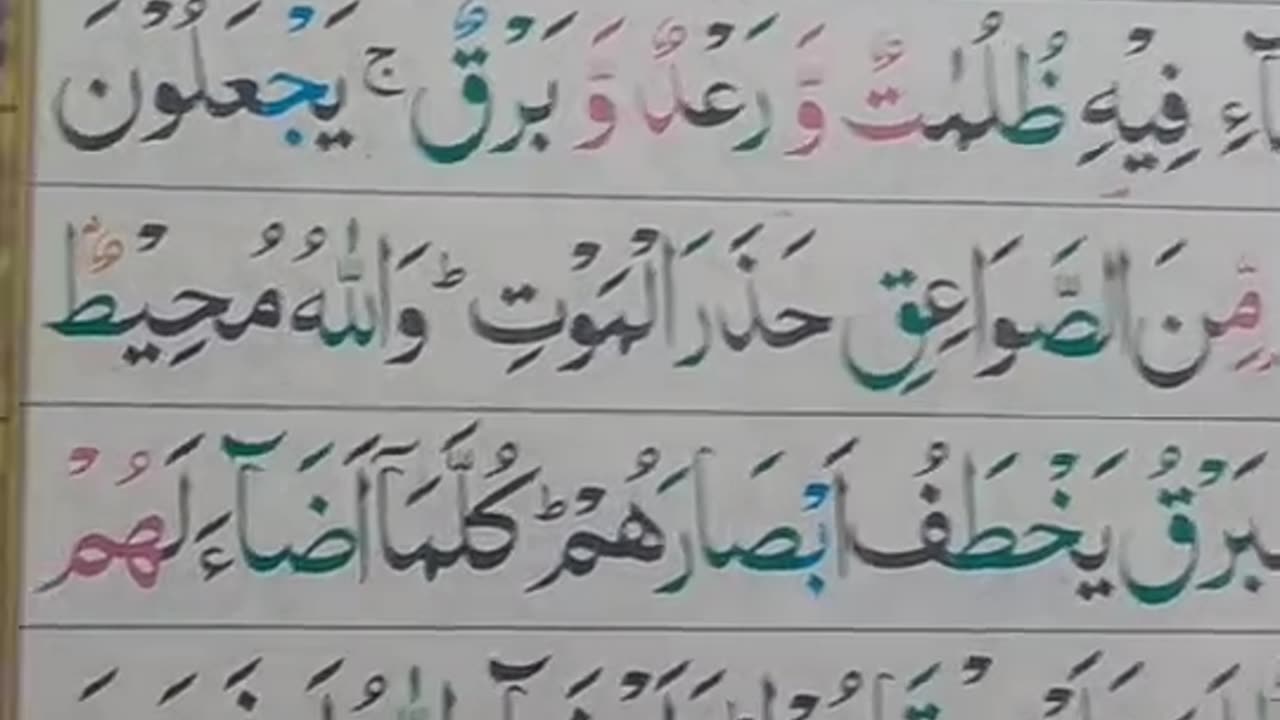 فِيۡهِ ظُلُمٰتٌ وَّ رَعۡدٌ وَّ بَرۡقٌ ۚ يَجۡعَلُوۡنَ
مِّنَ الصَّوَاعِقِ حَذَرَ الۡمَوۡتِ ؕ وَاللّٰهُ مُحِيۡطٌۢ
يَخۡطَفُ اَبۡصَارَهُمۡ ؕ كُلَّمَاۤ اَضَآءَ لَهُمۡ